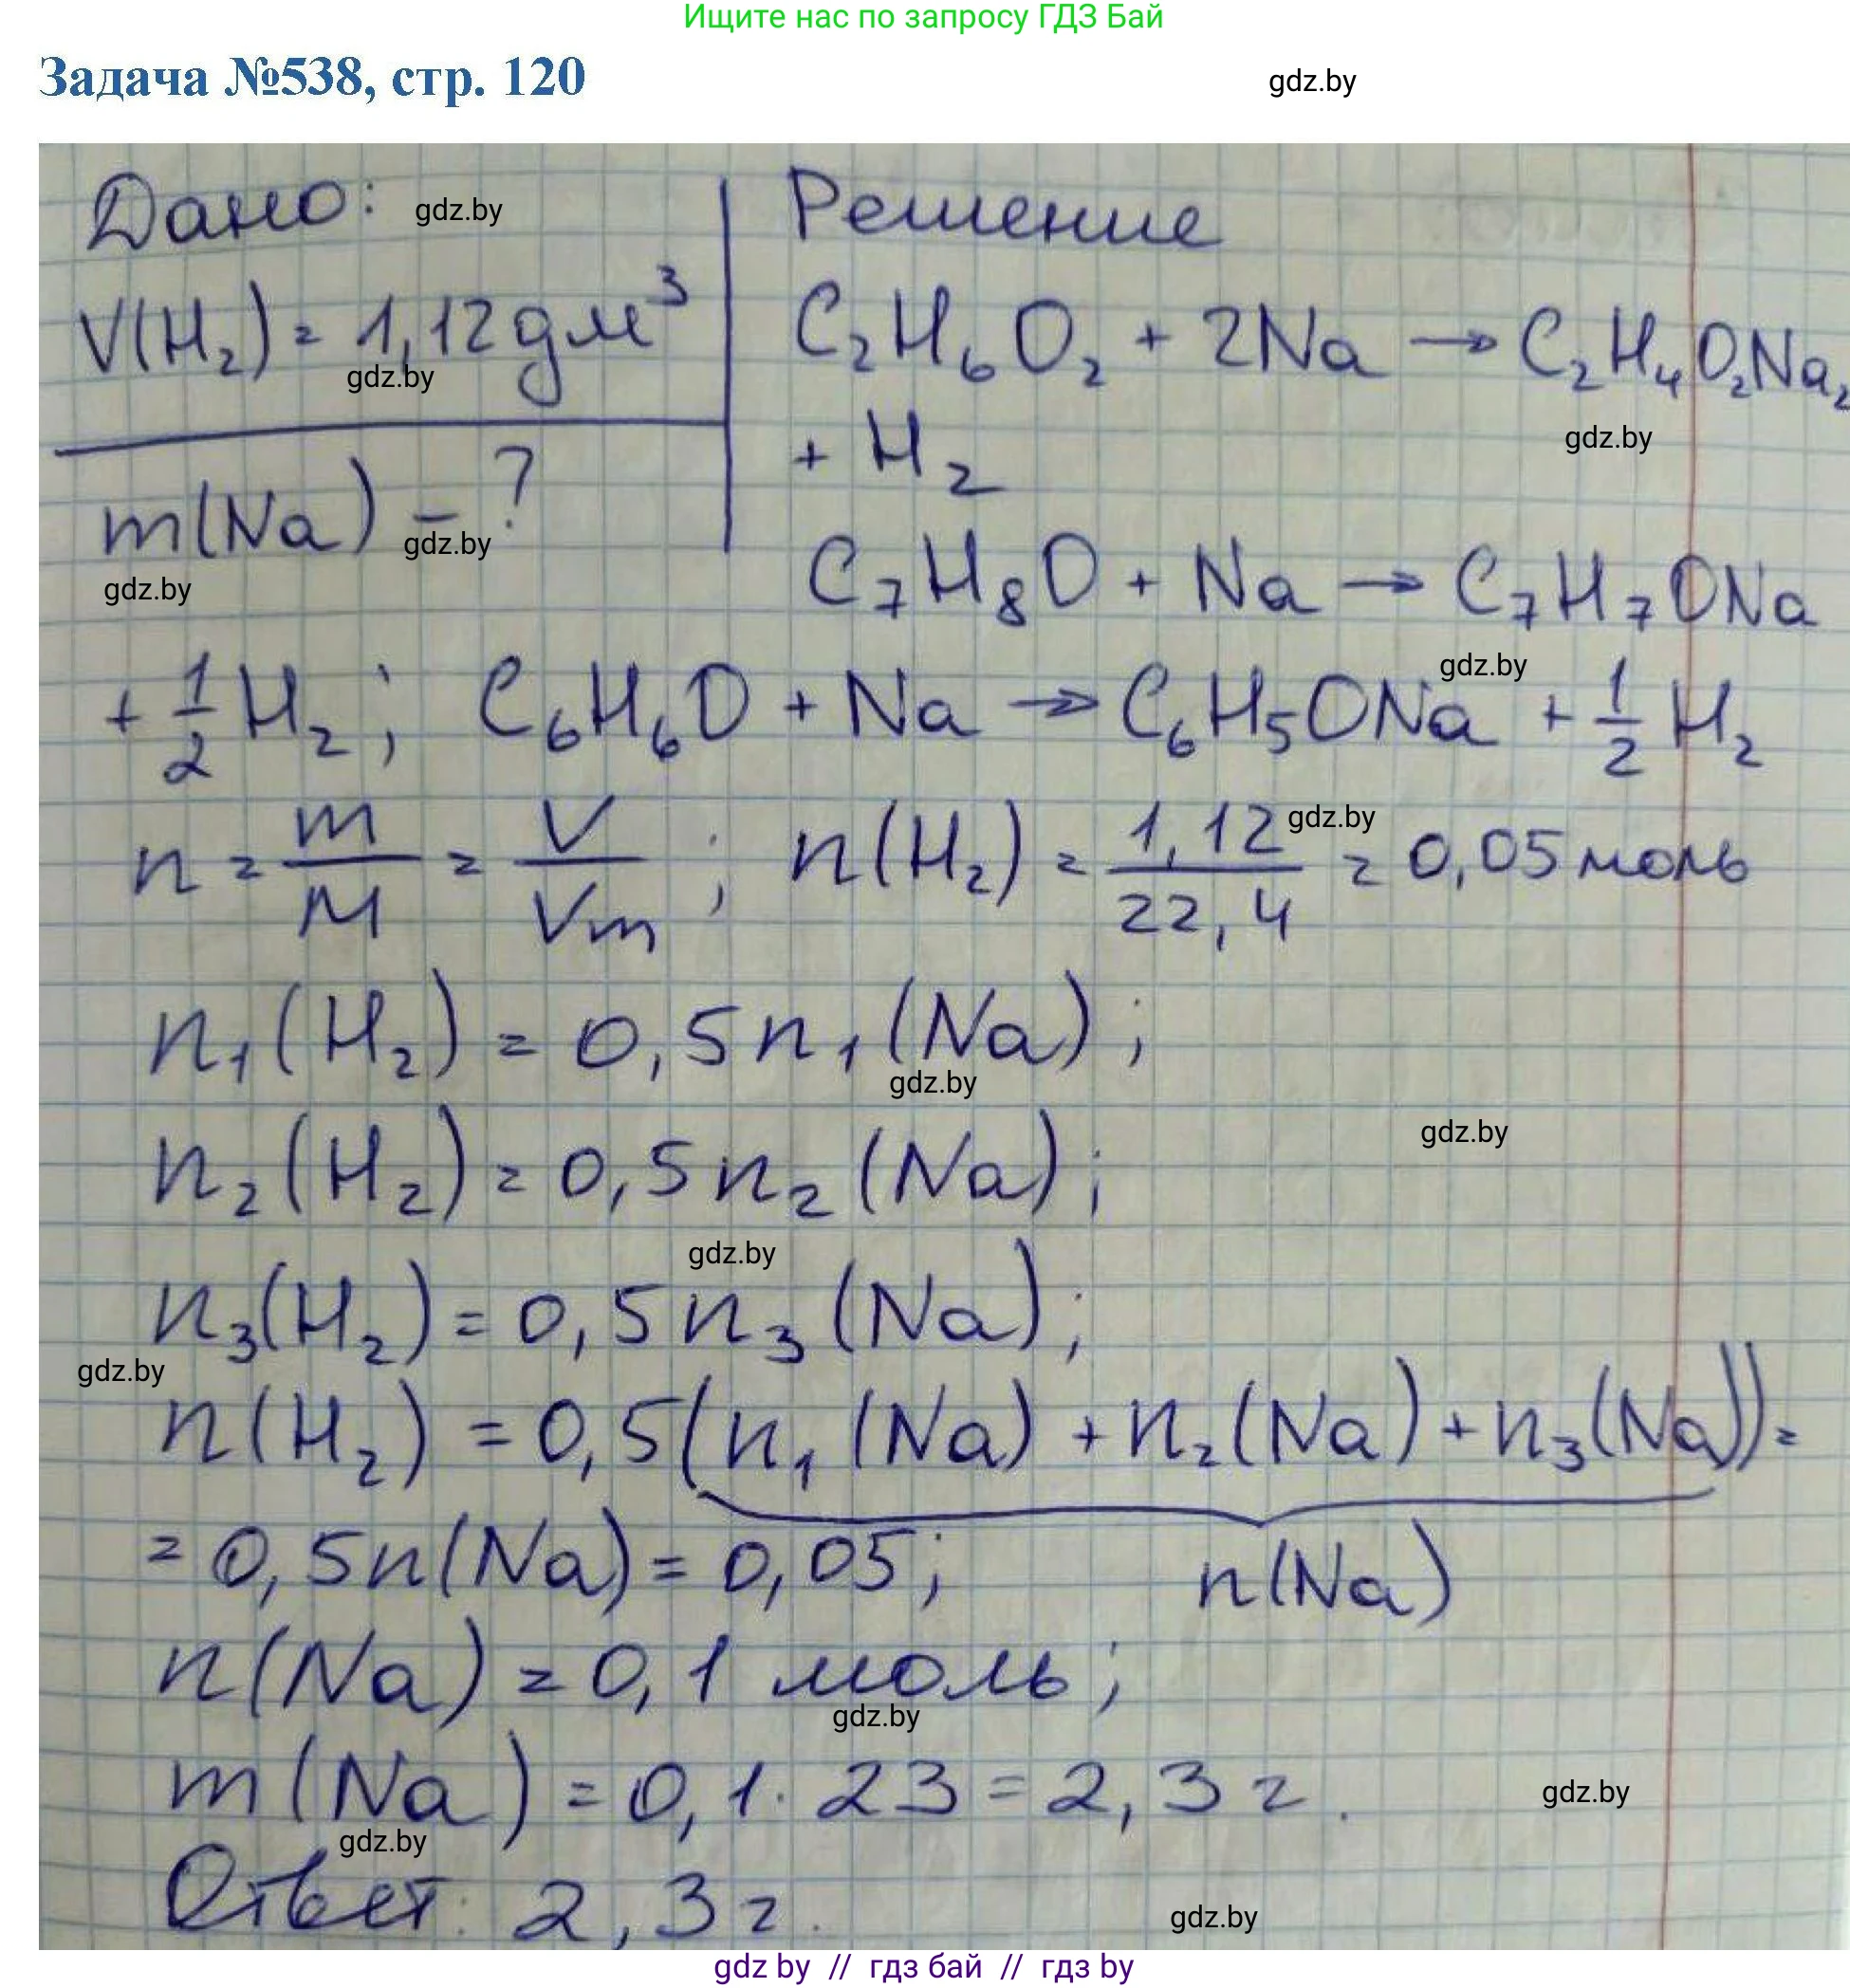 Ищите нас по запросу ГДЗ Бай
Задача №538, стр. 120
gdz.by
Дано:
gdz.by
V(H₂) = 1,12 дм³
gdz.by
m(Na) - ?
gdz.by
gdz.by
Решение
C₂H₆O₂ + 2Na → C₂H₄O₂Na₂
gdz.by
+ H₂
C₇H₈O + Na → C₇H₇ONa
+ 1/2 H₂; C₆H₆O + Na → C₆H₅ONa + 1/2 H₂
gdz.by
n = m/M = V/Vm; n(H₂) = 1,12/22,4 = 0,05 моль
gdz.by
n₁(H₂) = 0,5n₁(Na);
gdz.by
n₂(H₂) = 0,5n₂(Na);
gdz.by
gdz.by
n₃(H₂) = 0,5n₃(Na);
gdz.by
n(H₂) = 0,5(n₁(Na) + n₂(Na) + n₃(Na)) =
= 0,5n(Na) = 0,05; n(Na)
n(Na) = 0,1 моль;
gdz.by
m(Na) = 0,1 · 23 = 2,3 г.
gdz.by
gdz.by
Ответ: 2,3 г.
gdz.by
gdz by // гдз бай // гдз by